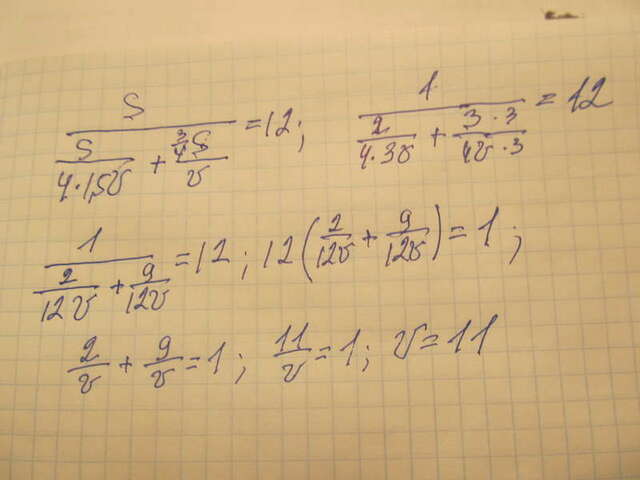 S/(S/(4·1,5v) + (3/4 S)/v) = 12; 1/(2/(4·3v) + (3·3)/(4v·3)) = 12
1/(2/(12v) + 9/(12v)) = 12; 12(2/(12v) + 9/(12v)) = 1;
2/v + 9/v = 1; 11/v = 1; v = 11